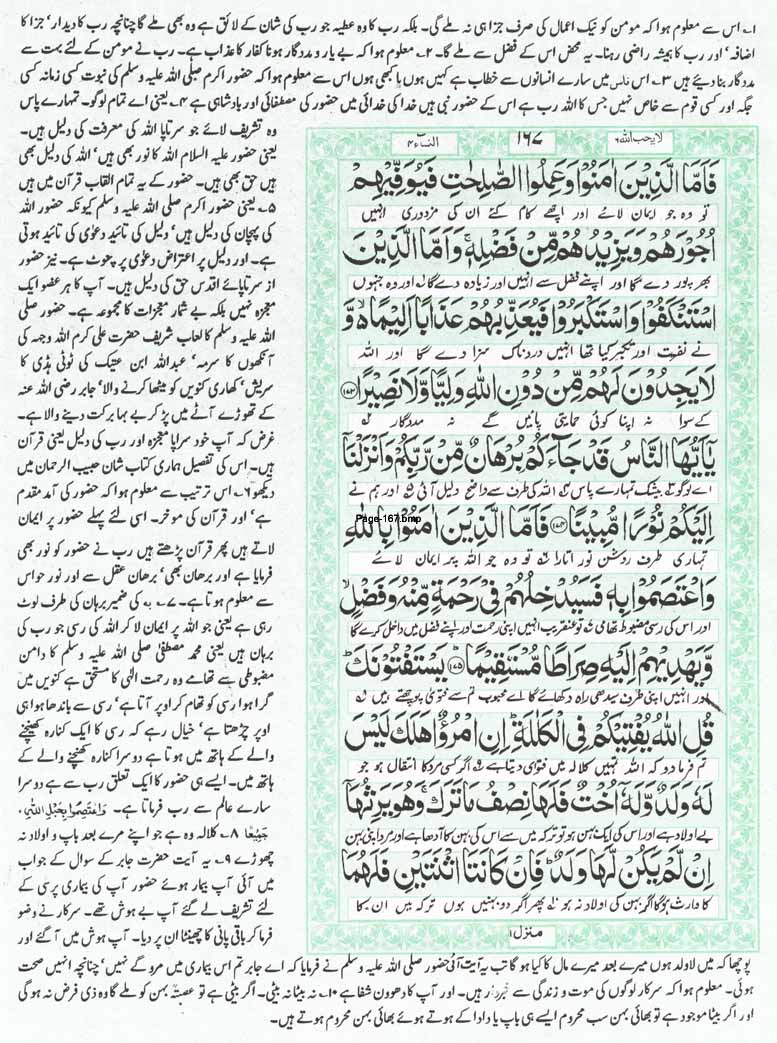 ۱؎ اس سے معلوم ہوا کہ مومن کو نیک اعمال کی صرف جزا ہی نہ ملے گی۔ بلکہ رب کا وہ عطیہ جو رب کی شان کے لائق ہے وہ بھی ملے گا چنانچہ رب کا دیدار‘ جزا کا
اضافہ‘ اور رب کا ہمیشہ راضی رہنا۔ یہ محض اس کے فضل سے ملے گا۔ ۲؎ معلوم ہوا کہ بے یار و مددگار ہونا کفار کا عذاب ہے۔ رب نے مومن کے لئے بہت سے
مددگار بنا دیئے ہیں ۳؎ اس ناس میں سارے انسانوں سے خطاب ہے کہیں ہوں یا کبھی ہوں اس سے معلوم ہوا کہ حضور اکرم صلی اللہ علیہ وسلم کی نبوت کسی زمانہ کسی
جگہ اور کسی قوم سے خاص نہیں جس کا اللہ رب ہے اس کے حضور نبی ہیں خدا کی خدائی میں حضور کی مصطفائی اور بادشاہی ہے ۴؎ یعنی اے تمام لوگو۔ تمہارے پاس
وہ تشریف لائے جو سرتاپا اللہ کی معرفت کی دلیل ہیں۔
یعنی حضور علیہ السلام اللہ کا نور بھی ہیں‘ اللہ کی دلیل بھی
ہیں حق بھی ہیں۔ حضور کے یہ تمام القاب قرآن میں ہیں
۵؎ یعنی حضور اکرم صلی اللہ علیہ وسلم کیونکہ حضور اللہ
کی پہچان کی دلیل ہیں‘ دلیل کی تائید دعوٰی کی تائید ہوتی
ہے۔ اور دلیل پر اعتراض دعوٰی پر چوٹ ہے۔ نیز حضور
از سرتاپائے اقدس حق کی دلیل ہیں۔ آپ کا ہر عضو ایک
معجزہ نہیں بلکہ بے شمار معجزات کا مجموعہ ہے۔ حضور صلی
اللہ علیہ وسلم کا لعاب شریف حضرت علی کرم اللہ وجہہ کی
آنکھوں کا سرمہ‘ عبداللہ ابن عتیک کی ٹوٹی ہڈی کا
سریش‘ کھاری کنویں کو میٹھا کرنے والا‘ جابر رضی اللہ عنہ
کے تھوڑے آٹے میں پڑ کر بے بہا برکت دینے والا ہے۔
غرض کہ آپ خود سراپا معجزہ اور رب کی دلیل یعنی قرآن
ہیں۔ اس کی تفصیل ہماری کتاب شان حبیب الرحمان میں
دیکھو ۶؎ اس ترتیب سے معلوم ہوا کہ حضور کی آمد مقدم
ہے‘ اور قرآن کی موخر۔ اسی لئے پہلے حضور پر ایمان
لاتے ہیں پھر قرآن پڑھتے ہیں رب نے حضور کو نور بھی
فرمایا ہے اور برھان بھی‘ برھان عقل سے اور نور حواس
سے معلوم ہوتا ہے۔ ۷؎ بہ کی ضمیر برہان کی طرف لوٹ
رہی ہے یعنی جو اللہ پر ایمان لا کر اللہ کی رسی جو رب کی
برہان ہیں یعنی محمد مصطفٰی صلی اللہ علیہ وسلم کا دامن
مضبوطی سے تھامے وہ رحمت الٰہی کا مستحق ہے کنویں میں
گرا ہوا رسی کو تھام کر اوپر آتا ہے‘ رسی سے باندھا ہوا ہی
اوپر چڑھتا ہے‘ خیال رہے کہ رسی کا ایک کنارہ کھینچنے
والے کے ہاتھ میں ہوتا ہے دوسرا کنارہ کھنچنے والے کے
ہاتھ میں۔ ایسے ہی حضور کا ایک تعلق رب سے ہے دوسرا
سارے عالم سے رب فرماتا ہے۔ وَاعْتَصِمُوا بِحَبْلِ اللّٰهِ
جَمِيْعًا ۸؎ کلالہ وہ ہے جو اپنے مرے بعد باپ و اولاد نہ
چھوڑے ۹؎ یہ آیت حضرت جابر کے سوال کے جواب
میں آئی آپ بیمار ہوئے حضور آپ کی بیماری پرسی کے
لئے تشریف لے گئے آپ بے ہوش تھے۔ سرکار نے وضو
فرما کر باقی پانی کا چھینٹا ان پر دیا۔ آپ ہوش میں آ گئے اور
لا یحب اللہ ۶
۱۶۷
النساء ۴
فَاَمَّا الَّذِيْنَ اٰمَنُوْا وَعَمِلُوا الصّٰلِحٰتِ فَيُوَفِّيْهِمْ
تو وہ جو ایمان لائے اور اچھے کام کئے ان کی مزدوری انہیں
اُجُوْرَهُمْ وَيَزِيْدُهُمْ مِّنْ فَضْلِهٖ ۚ وَاَمَّا الَّذِيْنَ
بھرپور دے گا اور اپنے فضل سے انہیں اور زیادہ دے گا اور وہ جنہوں
اسْتَنْكَفُوْا وَاسْتَكْبَرُوْا فَيُعَذِّبُهُمْ عَذَابًا اَلِيْمًا ۙ وَّ
نے نفرت اور تکبر کیا تھا انہیں دردناک سزا دے گا اور اللہ
لَا يَجِدُوْنَ لَهُمْ مِّنْ دُوْنِ اللّٰهِ وَلِيًّا وَّلَا نَصِيْرًا ۝۱۷۳
کے سوا نہ اپنا کوئی حمایتی پائیں گے نہ مددگار
يٰٓاَيُّهَا النَّاسُ قَدْ جَآءَكُمْ بُرْهَانٌ مِّنْ رَّبِّكُمْ وَاَنْزَلْنَآ
اے لوگو بیشک تمہارے پاس اللہ کی طرف سے واضح دلیل آئی اور ہم نے
اِلَيْكُمْ نُوْرًا مُّبِيْنًا ۝۱۷۴ فَاَمَّا الَّذِيْنَ اٰمَنُوْا بِاللّٰهِ
Page-167.bmp
تمہاری طرف روشن نور اتارا تو وہ جو اللہ پر ایمان لائے
وَاعْتَصَمُوْا بِهٖ فَسَيُدْخِلُهُمْ فِيْ رَحْمَةٍ مِّنْهُ وَفَضْلٍ ۙ
اور اس کی رسی مضبوط تھامی تو عنقریب انہیں اپنی رحمت اور اپنے فضل میں داخل کرے گا
وَّيَهْدِيْهِمْ اِلَيْهِ صِرَاطًا مُّسْتَقِيْمًا ۝۱۷۵ يَسْتَفْتُوْنَكَ
اور انہیں اپنی طرف سیدھی راہ دکھائے گا اے محبوب تم سے فتویٰ پوچھتے ہیں
قُلِ اللّٰهُ يُفْتِيْكُمْ فِي الْكَلٰلَةِ ۚ اِنِ امْرُؤٌا هَلَكَ لَيْسَ
تم فرما دو کہ اللہ تمہیں کلالہ میں فتویٰ دیتا ہے اگر کسی مرد کا انتقال ہو جو
لَهٗ وَلَدٌ وَّلَهٗٓ اُخْتٌ فَلَهَا نِصْفُ مَا تَرَكَ ۚ وَهُوَ يَرِثُهَآ
بے اولاد ہے اور اس کی ایک بہن ہو تو ترکہ میں سے اس کی بہن کا آدھا ہے اور مرد اپنی بہن
اِنْ لَّمْ يَكُنْ لَّهَا وَلَدٌ ۚ فَاِنْ كَانَتَا اثْنَتَيْنِ فَلَهُمَا
کا وارث ہوگا اگر بہن کی اولاد نہ ہو پھر اگر دو بہنیں ہوں ترکہ میں ان کا
منزل ۱
پوچھا کہ میں لاولد ہوں میرے بعد میرے مال کا کیا ہو گا تب یہ آیت آئی حضور صلی اللہ علیہ وسلم نے فرمایا کہ اے جابر تم اس بیماری میں مرو گے نہیں‘ چنانچہ انہیں صحت
ہوئی۔ معلوم ہوا کہ سرکار لوگوں کی موت و زندگی سے خبردار ہیں۔ اور آپ کا دھوون شفا ہے ۱۰؎ نہ بیٹا نہ بیٹی۔ اگر بیٹی ہے تو عصبتہً بہن کو ملے گا وہ ذی فرض نہ ہو گی
اور اگر بیٹا موجود ہے تو بھائی بہن سب محروم ایسے ہی باپ یا دادا کے ہوتے ہوئے بھائی بہن محروم ہوتے ہیں۔